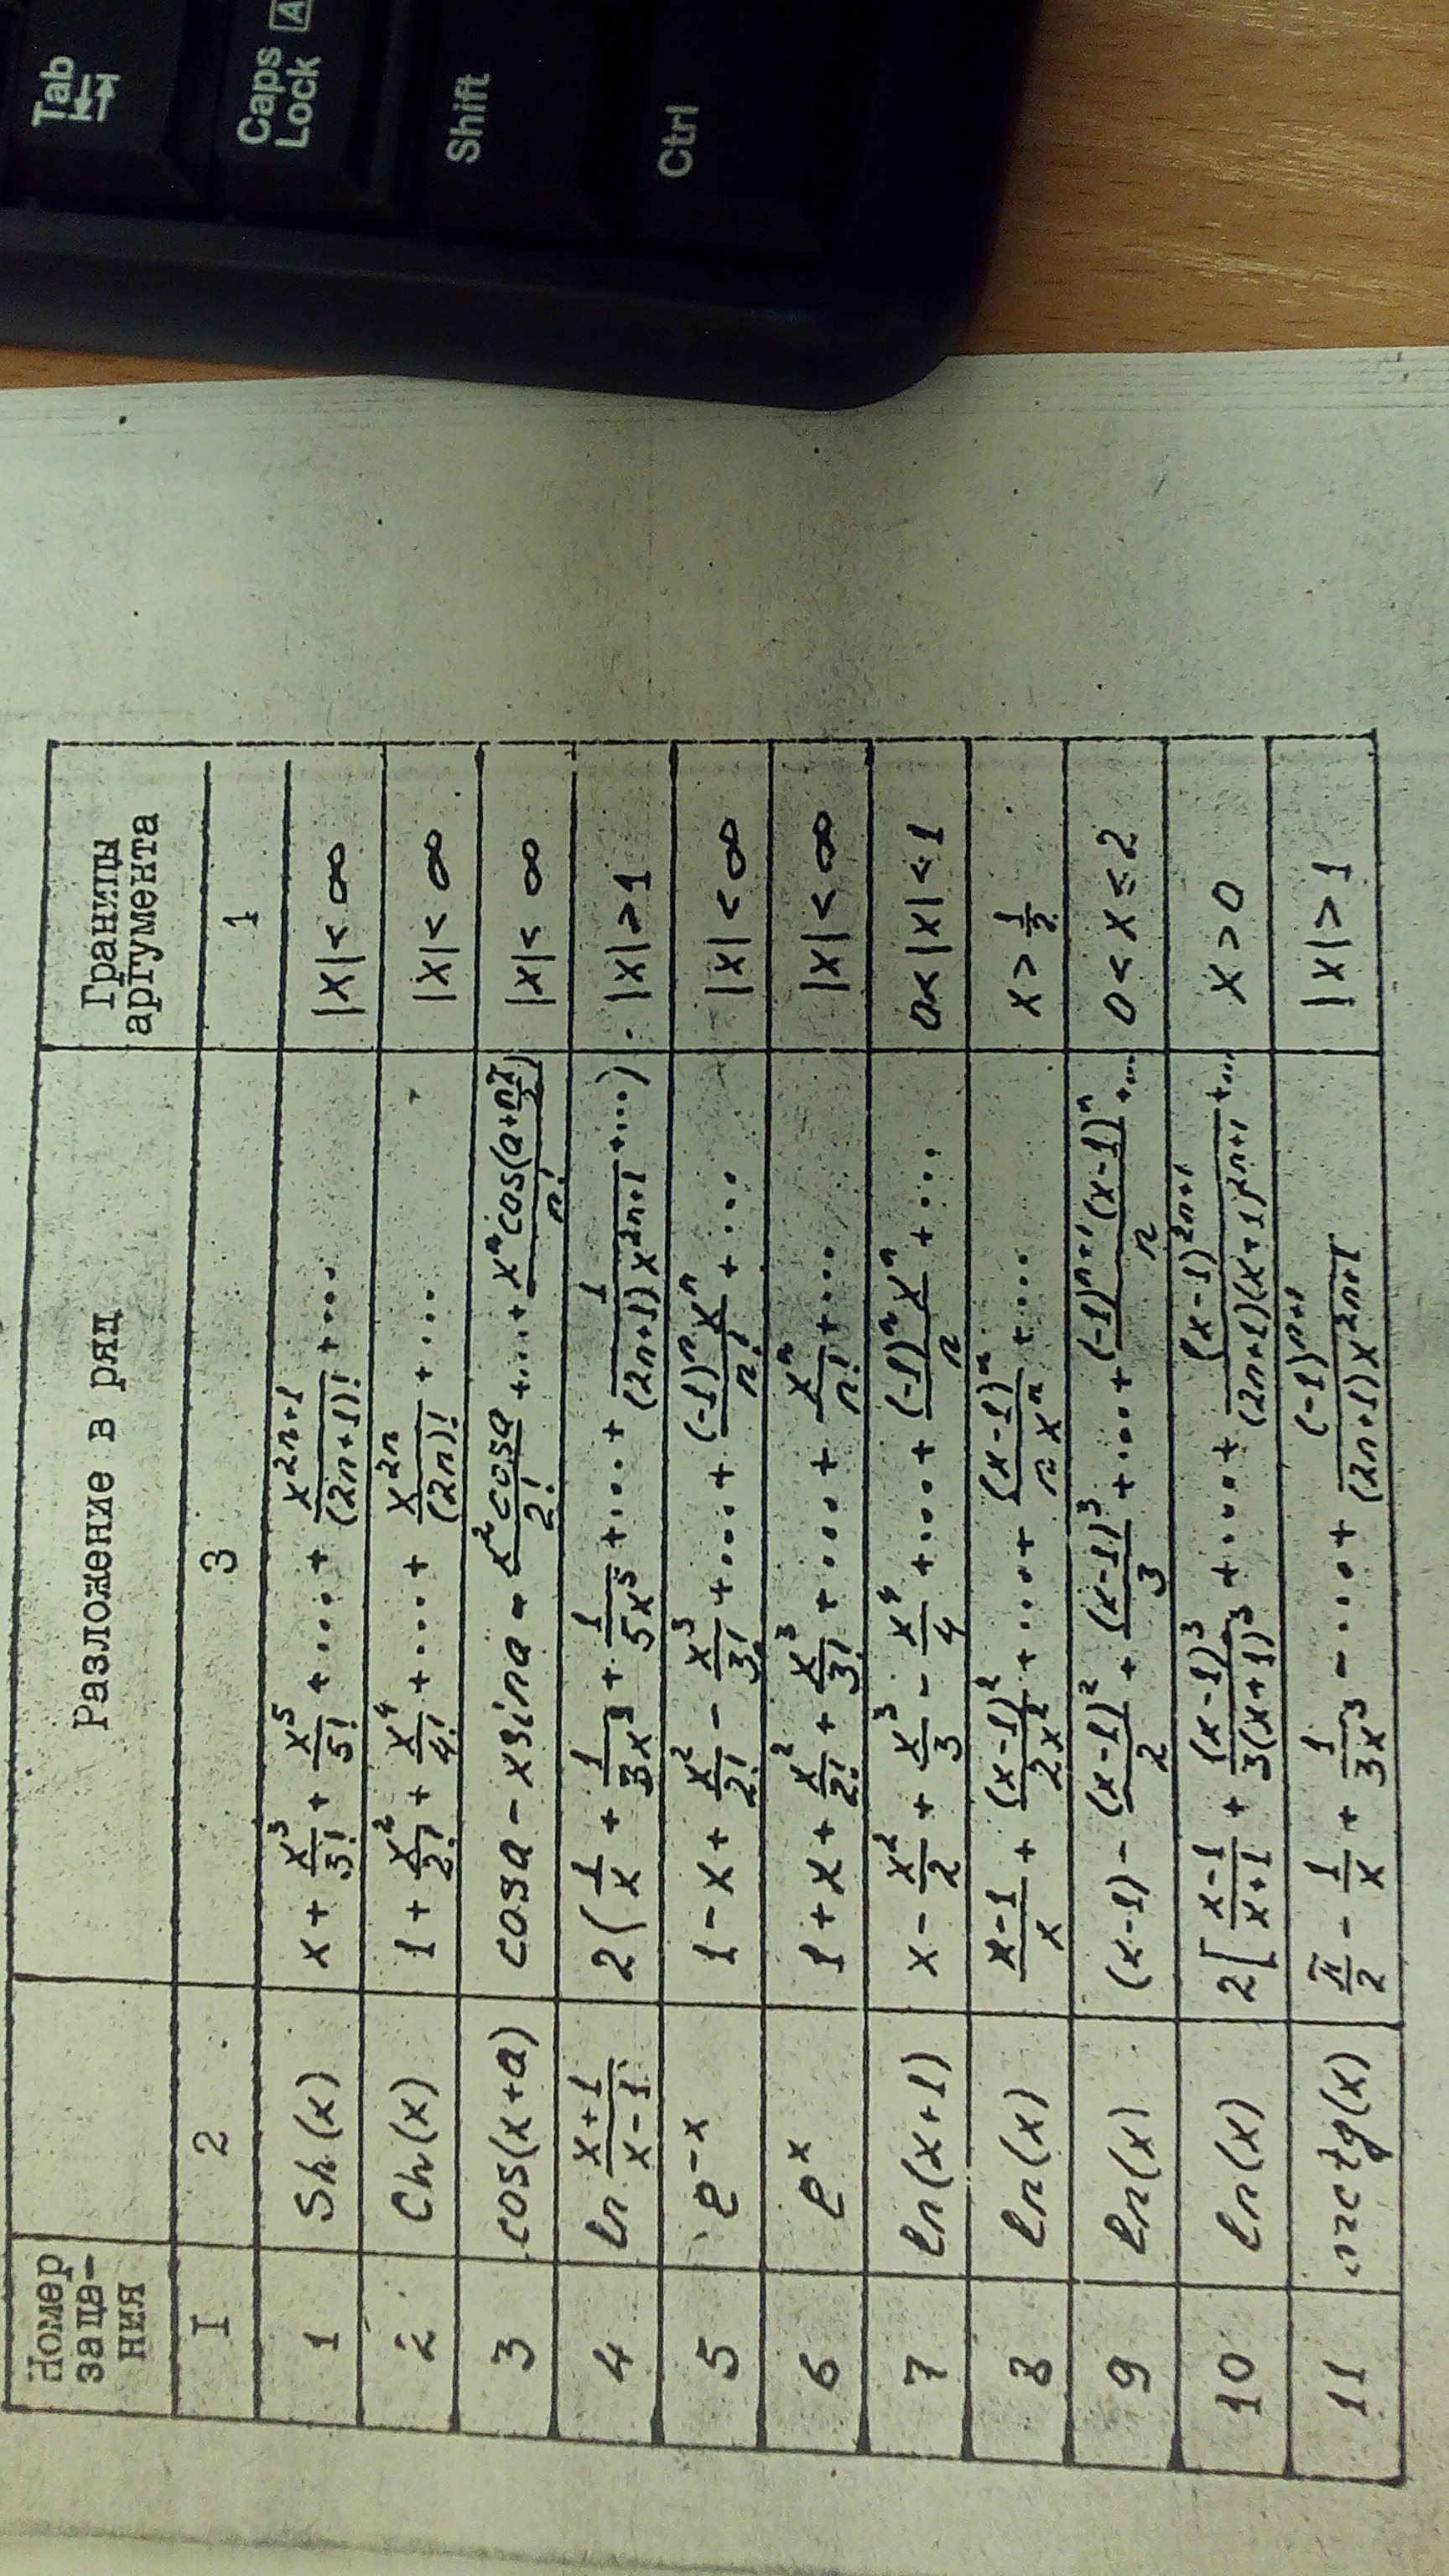 Tab
Caps Lock A
Shift
Ctrl
Номер зада- ния | | Разложение в ряд | Границы аргумента
I | 2 | 3 | 1
1 | Sh(x) | x + x³/3! + x⁵/5! + .... + x²ⁿ⁺¹/(2n+1)! + ... | |x| < ∞
2 | Ch(x) | 1 + x²/2! + x⁴/4! + .... + x²ⁿ/(2n)! + ... | |x| < ∞
3 | cos(x+a) | cosa - xsina - x²cosa/2! + .... + xⁿcos(a+nπ/2)/n! | |x| < ∞
4 | ln (x+1)/(x-1) | 2(1/x + 1/3x³ + 1/5x⁵ + .... + 1/(2n+1)x²ⁿ⁺¹ + ...) | |x| > 1
5 | e⁻ˣ | 1 - x + x²/2! - x³/3! + .... + (-1)ⁿxⁿ/n! + .... | |x| < ∞
6 | eˣ | 1 + x + x²/2! + x³/3! + .... + xⁿ/n! + .... | |x| < ∞
7 | ln(x+1) | x - x²/2 + x³/3 - x⁴/4 + .... + (-1)ⁿxⁿ/n + .... | 0< |x| < 1
8 | ln(x) | (x-1)/x + (x-1)²/2x² + .... + (x-1)ⁿ/nxⁿ + .... | x > 1/2
9 | ln(x) | (x-1) - (x-1)²/2 + (x-1)³/3 + .... + (-1)ⁿ⁺¹(x-1)ⁿ/n + ... | 0 < x ≤ 2
10 | ln(x) | 2[(x-1)/(x+1) + (x-1)³/3(x+1)³ + .... + (x-1)²ⁿ⁺¹/(2n+1)(x+1)²ⁿ⁺¹ + ... | x > 0
11 | arctg(x) | π/2 - 1/x + 1/3x³ - .... + (-1)ⁿ⁺¹/(2n+1)x²ⁿ⁺¹ | |x| > 1